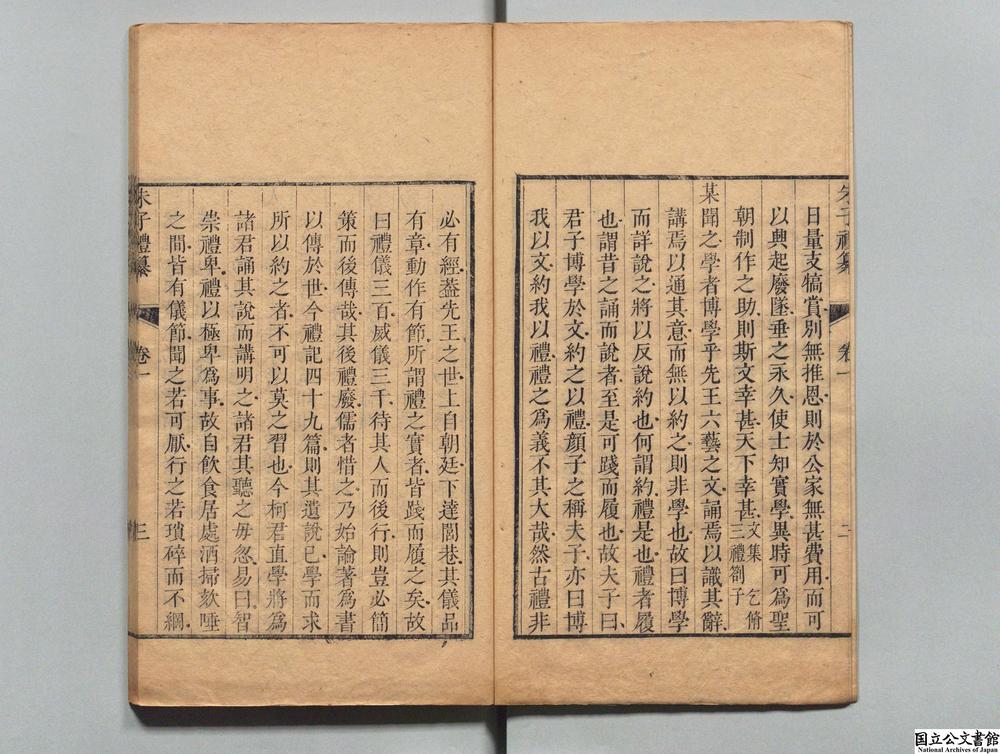 朱子禮纂
卷一
二
日量支犒賞別無推恩則於公家無甚費用而可
以興起廢墜垂之永久使士知實學異時可為聖
朝制作之助則斯文幸甚天下幸甚文集 乞脩三禮劄子
某聞之學者博學乎先王六藝之文誦焉以識其辭
講焉以通其意而無以約之則非學也故曰博學
而詳說之將以反說約也何謂約禮是也禮者履
也謂昔之誦而說者至是可踐而履也故夫子曰
君子博學於文約之以禮顔子之稱夫子亦曰博
我以文約我以禮禮之為義不其大哉然古禮非
必有經葢先王之世上自朝廷下達閭巷其儀品
有章動作有節所謂禮之實者皆踐而履之矣故
曰禮儀三百威儀三千待其人而後行則豈必簡
策而後傳哉其後禮廢儒者惜之乃始論著為書
以傳於世今禮記四十九篇則其遺說已學而求
所以約之者不可以莫之習也今柯君直學將爲
諸君誦其說而講明之諸君其聽之毋忽易曰智
崇禮卑禮以極卑爲事故自飲食居處洒掃欬唾
之間皆有儀節聞之若可厭行之若瑣碎而不綱
朱子禮纂
卷一
三
国立公文書館
National Archives of Japan